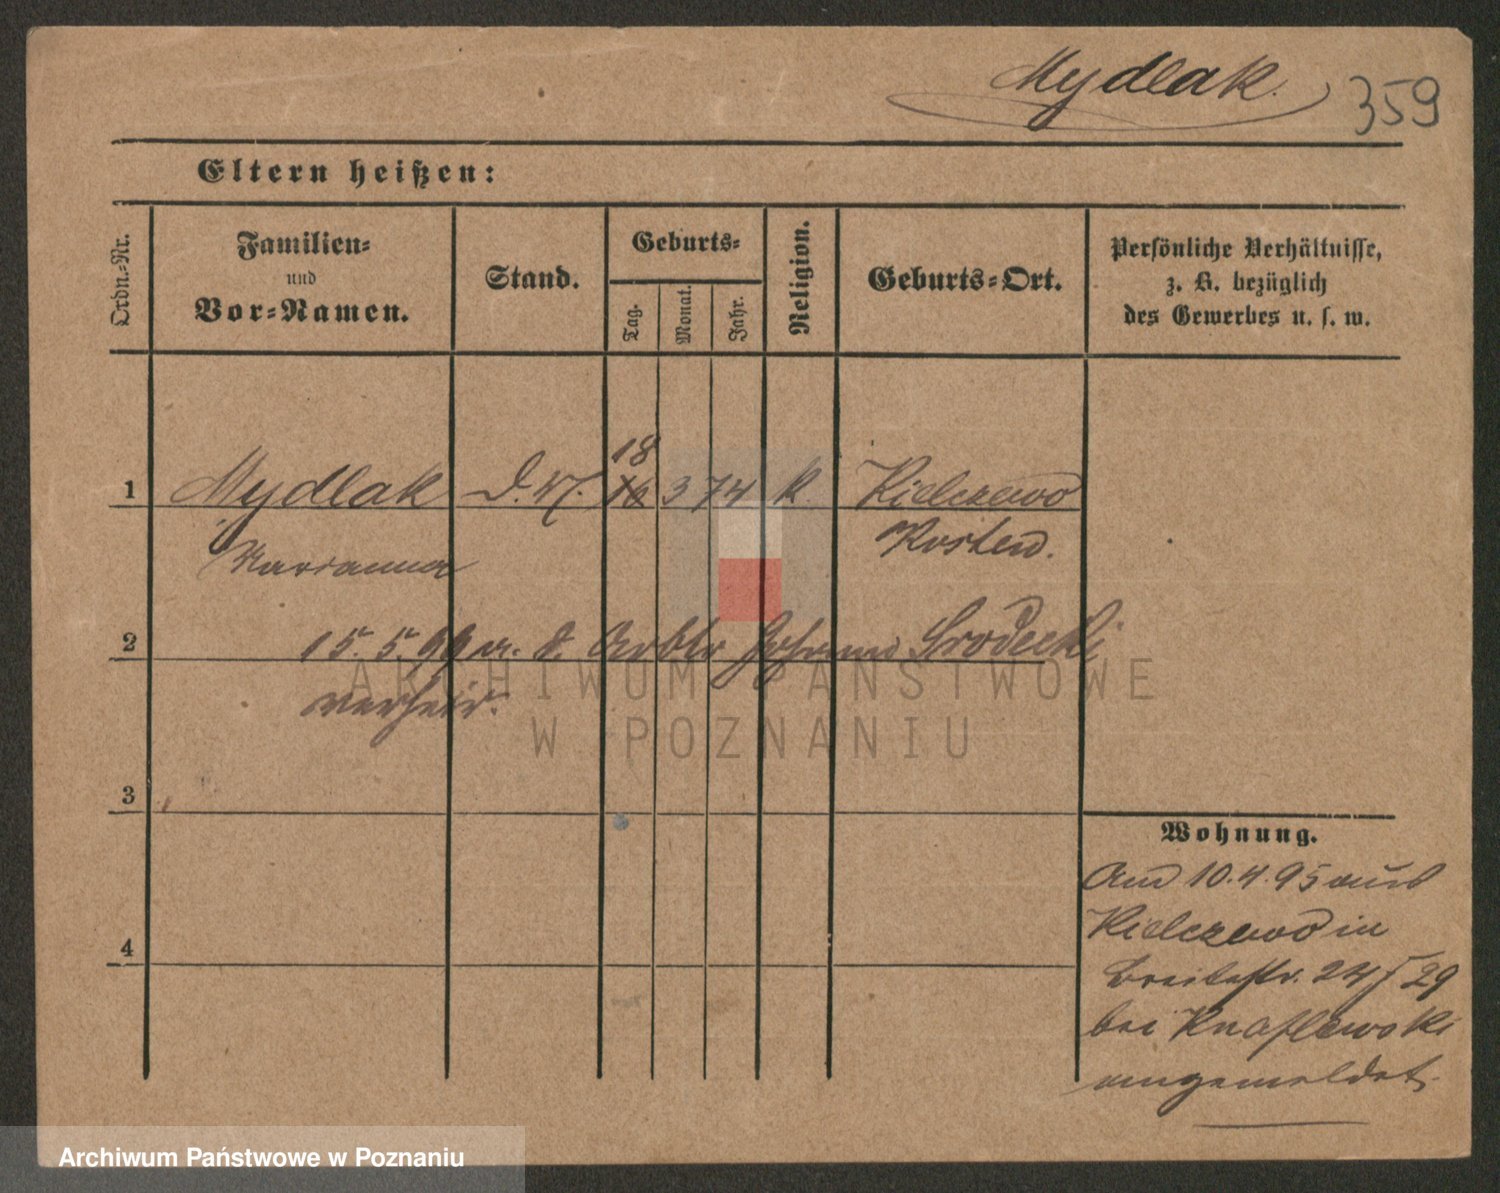 Mydlak. 359
Eltern heißen:
Ordn.-Nr.
Familien-
und
Vor-Namen.
Stand.
Geburts-
Tag.
Monat.
Jahr.
Religion.
Geburts-Ort.
Persönliche Verhältnisse,
z. B. bezüglich
des Gewerbes u. s. w.
18
1 Mydlak D. M. 16 3 74 k. Kielczewo
Marianna Kosten.
2 15. 5. 99 m. d. Arbtr Johann Srodecki
verheir.
ARCHIWUM PAŃSTWOWE
W POZNANIU
3
4
Wohnung.
Am 10.4.95 aus
Kielczewo in
Breitestr. 24/29
bei Knaflewski
angemeldet.
Archiwum Państwowe w Poznaniu